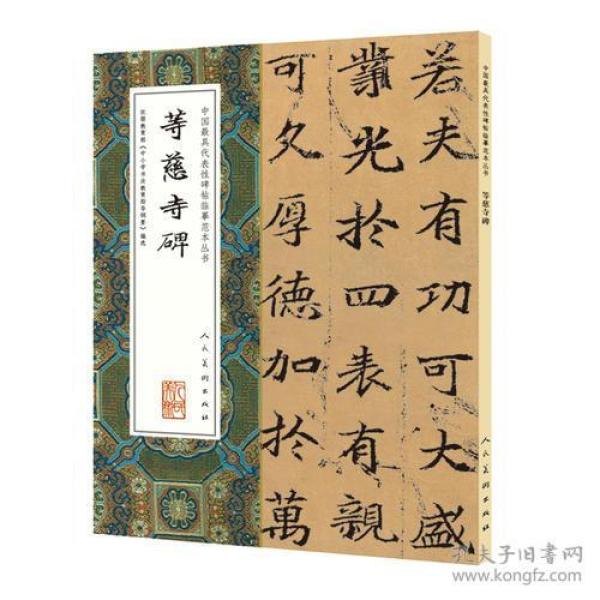 中国最具代表性碑帖临摹范本丛书
等慈寺碑
依据教育部《中小学书法教育指导纲要》编选
人民美术出版社
若夫有功可大盛
業光於四表有親
可久厚德加於萬
中国最具代表性碑帖临摹范本丛书
等慈寺碑
人民美术出版社
孔夫子旧书网
www.kongfz.com